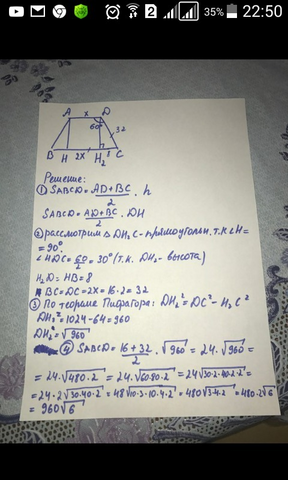 35% 22:50
A x D
60°
32
B H 2x H₂ C
Решение:
① SABCD = AD+BC/2 · h
SABCD = AD+BC/2 · DH
② рассмотрим Δ DH₂C - прямоугольн. т.к ∠H=
= 90°
∠HDC = 60/2 = 30° (т.к. DH₂ - высота)
H₂D = HB = 8
BC = DC = 2x = 16·2 = 32
③ По теореме Пифагора: DH₂² = DC² - H₂C²
DH₂² = 1024-64 = 960
DH₂ = √960
④ SABCD = 16+32/2 · √960 = 24·√960 =
= 24·√480·2 = 24·√60·80·2 = 24√30·2·40·2·2 =
= 24·2√30·40·2 = 48√10·3·10·4·2 = 480√3·4·2 = 480·2√6
= 960√6